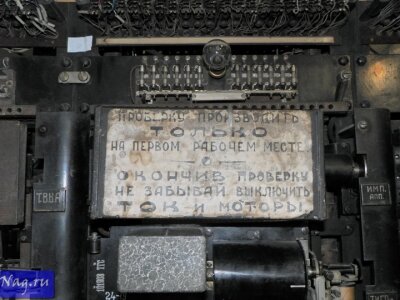 ПРОВЕРКУ ПРОИЗВОДИТЬ
ТОЛЬКО
НА ПЕРВОМ РАБОЧЕМ МЕСТЕ
О
ОКОНЧИВ ПРОВЕРКУ
НЕ ЗАБЫВАЙ ВЫКЛЮЧИТЬ
ТОК И МОТОРЫ.
ТВВА
ИМП.
АПП.
24-
Nag.ru